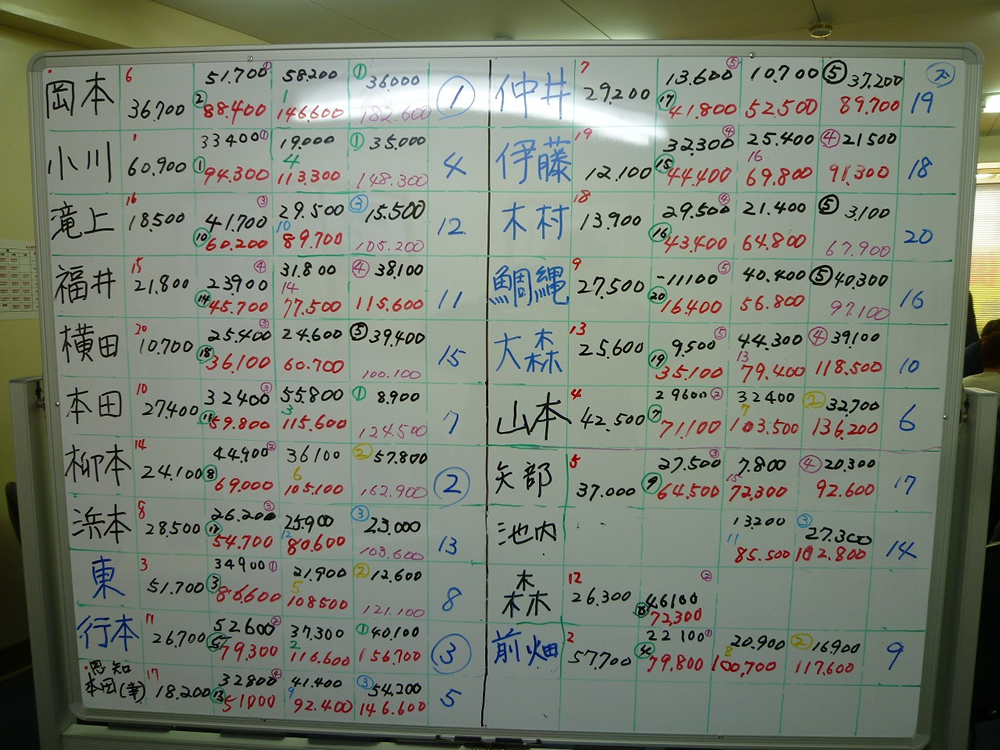 岡本 6 36,700 51,700 ① ② 88,400 58200 1 146600 ① 36000 182,600 ①
小川 1 60,900 33400 ① ① 94,300 19,000 4 113,300 ① 35,000 148,300 4
滝上 16 18,500 41,700 ③ ⑩ 60,200 29,500 10 89,700 ③ 15,500 105,200 12
福井 15 21,800 23,900 ④ ⑭ 45,700 31,800 14 77,500 ④ 38,100 115,600 11
横田 20 10,700 25,400 ⑤ ⑱ 36,100 24,600 60,700 ⑤ 39,400 100,100 15
本田 10 27400 32400 ③ ⑪ 59,800 55,800 3 115,600 ① 8,900 124,500 7
柳本 14 24,100 44,900 ② ⑧ 69,000 36100 6 105,100 ② 57,800 162,900 ②
浜本 8 28,500 26,200 ③ ⑫ 54,700 25,900 12 80,600 ③ 23,000 103,600 13
東 3 51,700 34900 ① ③ 86,600 21,900 5 108500 ② 12,600 121,100 8
行本 11 26,700 52600 ② ⑤ 79,300 37,300 2 116,600 ① 40,100 156,700 ③
恩知
本田(幸) 17 18,200 32800 ④ ⑬ 51000 41,400 9 92,400 ③ 54,200 146,600 5
仲井 7 29,200 13,600 ⑤ ⑰ 41,800 10,700 52,500 ⑤ 37,200 89,700 19
伊藤 19 12,100 32,300 ④ ⑮ 44,400 25,400 16 69,800 ④ 21500 91,300 18
木村 18 13,900 29,500 ④ ⑯ 43,400 21,400 64,800 ⑤ 3,100 67,900 20
鯛縄 9 27,500 -11100 ⑤ ⑳ 16,400 40,400 56,800 ⑤ 40,300 97,100 16
大森 13 25,600 9,500 ⑤ ⑲ 35,100 44,300 13 79,400 ④ 39,100 118,500 10
山本 4 42,500 29600 ② ⑦ 71,100 32400 7 103,500 ② 32,700 136,200 6
矢部 5 37,000 27,500 ③ ⑨ 64,500 7,800 15 72,300 ④ 20,300 92,600 17
池内 13,200 11 85,500 ③ 27,300 102,800 14
森 12 26,300 46100 ② 72,300
前畑 2 57,700 22100 ① ④ 79,800 20,900 8 100,700 ② 16900 117,600 9